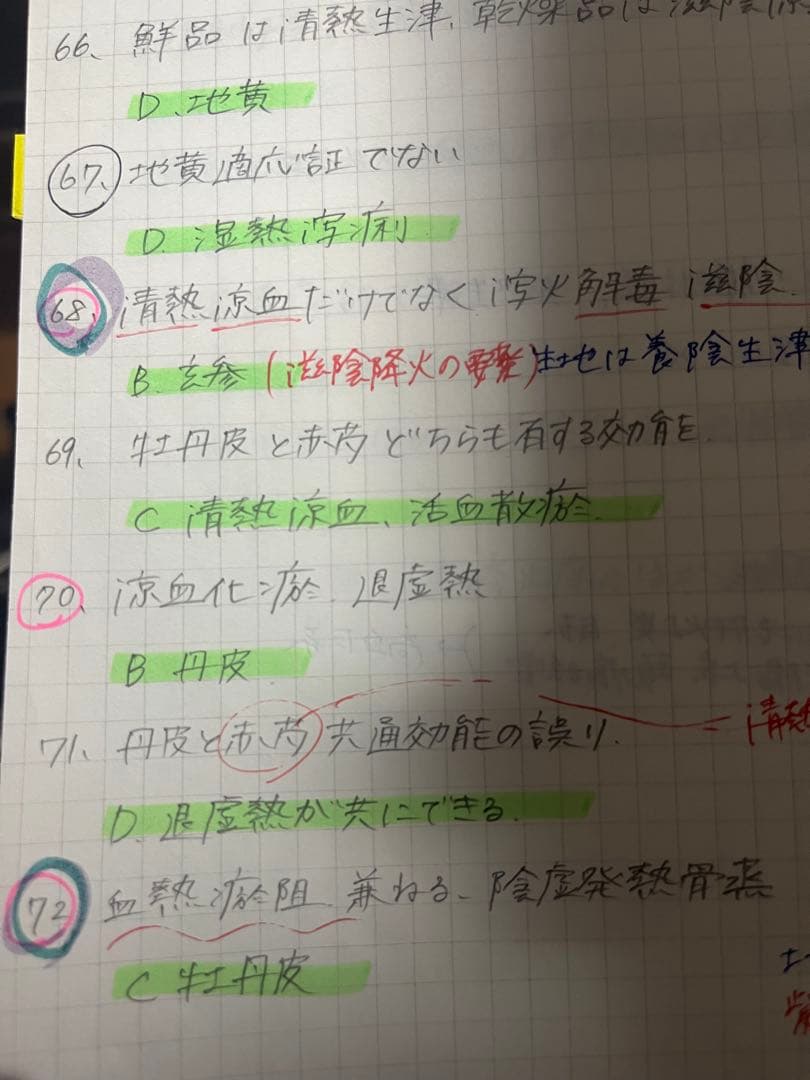 66、鮮品は清熱生津、乾燥品は滋陰涼
D、地黄
67、地黄適応証でない
D、湿熱瀉痢
68、清熱涼血だけでなく瀉火解毒 滋陰
B、玄参(滋陰降火の要薬)生地は養陰生津
69、牡丹皮と赤芍どちらも有する効能
C 清熱涼血、活血散瘀
70、涼血化瘀 退虚熱
B 丹皮
71、丹皮と赤芍共通効能の誤り 清熱
D、退虚熱が共にできる
72 血熱瘀阻 兼ねる、陰虚発熱骨蒸
C 牡丹皮